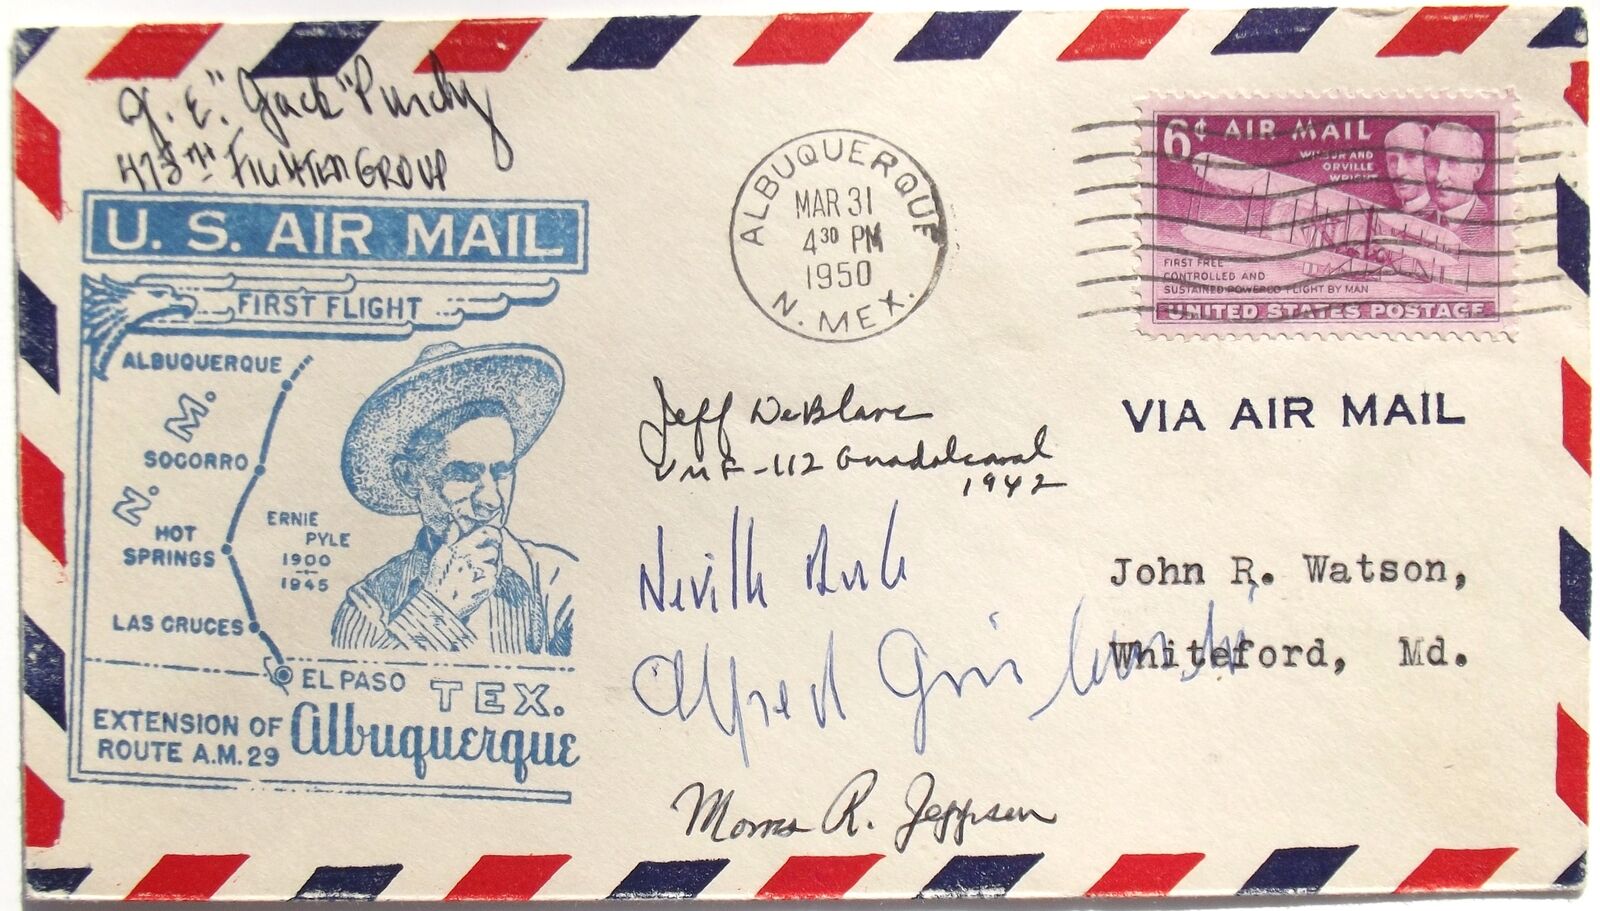 J. E. "Jack" Purdy
475TH FIGHTER GROUP
U. S. AIR MAIL
FIRST FLIGHT
ALBUQUERQUE
N. M.
SOCORRO
HOT
SPRINGS
ERNIE
PYLE
1900
1945
LAS CRUCES
EL PASO
TEX.
EXTENSION OF
ROUTE A.M. 29
Albuquerque
ALBUQUERQUE
MAR 31
4 30 PM
1950
N. MEX.
6¢ AIR MAIL
WILBUR AND
ORVILLE
WRIGHT
FIRST FREE
CONTROLLED AND
SUSTAINED POWERED FLIGHT BY MAN
UNITED STATES POSTAGE
VIA AIR MAIL
Jeff DeBlanc
VMF-112 Guadalcanal
1942
Neville Duke
Alfred Grislawski
Morris R. Jeppson
John R. Watson,
Whiteford, Md.